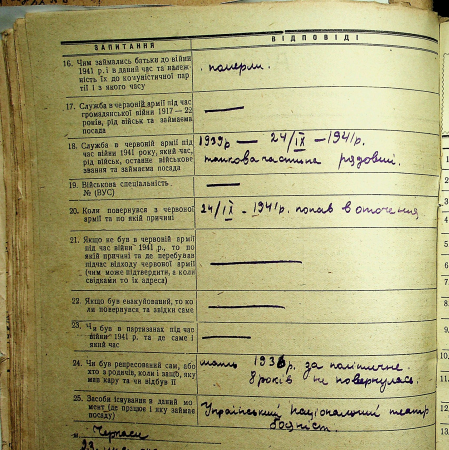 ЗАПИТАННЯ
ВІДПОВІДІ
16. Чим займались батьки до війни
1941 р. і в даний час та належ-
ність їх до комуністичної пар-
тії і з якого часу
померли.
17. Служба в червоній армії під час
громадянської війни 1917—22
років, рід військ та займаєма
посада
—
18. Служба в червоній армії під
час війни 1941 року, який час,
рід військ, останнє військове
звання та займаєма посада
1939р — 24/IX — 1941р.
танкова частина рядовий.
19. Військова спеціальність
№ (ВУС)
—
20. Коли повернувся з червоної
армії та по якій причині
24/IX - 1941р. попав в оточення,
21. Якщо не був в червоній армії
під час війни 1941 р., то по
якій причині та де перебував
підчас відходу червоної армії
(чим може підтвердити, а коли
свідками то їх адреса)
—
22. Якщо був евакуйований, то ко
ли повернувся та звідки саме
—
23. Чи був в партизанах під час
війни 1941 р. та де саме і
який час
—
24. Чи був репресований сам, або
хто з родичів, коли і защо, яку
мав кару та чи відбув її
мать 1936р. за політичне.
8 років не повернулась.
25. Засоби існування в даний мо
мент (де працює і яку займає
посаду)
Український національний театр
Черкаси
10.
11.
12.
13.